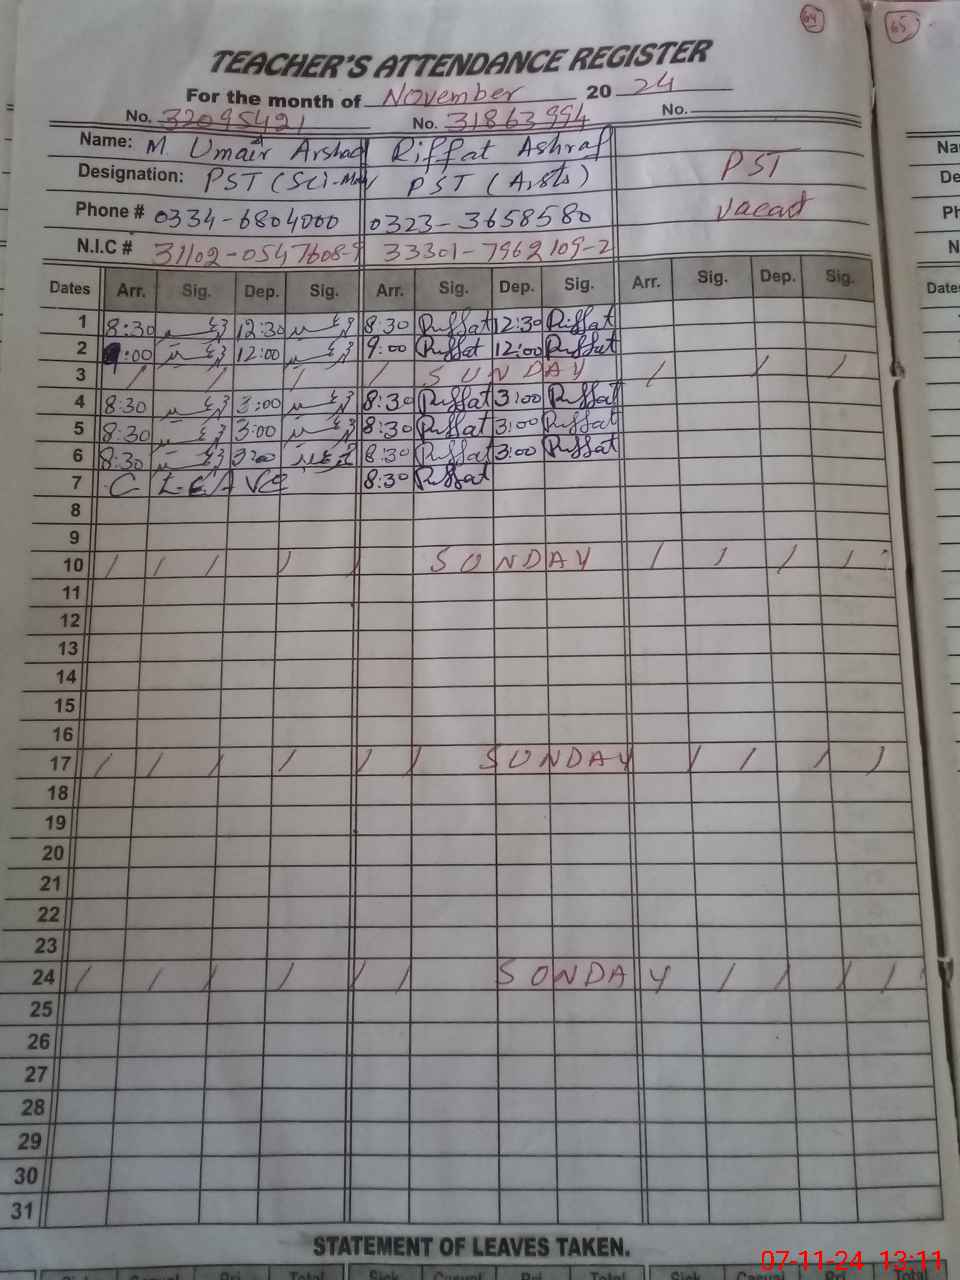 64 65
TEACHER'S ATTENDANCE REGISTER
For the month of November 20 24
No. 32095421 No. 31863994 No.
Name: M. Umair Arshad Riffat Ashraf
PST
Designation: PST (Sci-Math) PST (Arts)
vacant
Phone # 0334-6804000 0323-3658580
N.I.C # 31102-0547608-9 33301-7962109-2
Dates Arr. Sig. Dep. Sig. Arr. Sig. Dep. Sig. Arr. Sig. Dep. Sig.
1 8:30 12:30 8:30 Riffat 12:30 Riffat
2 9:00 12:00 9:00 Riffat 12:00 Riffat
3 / / / / SUNDAY / / /
4 8:30 3:00 8:30 Riffat 3:00 Riffat
5 8:30 3:00 8:30 Riffat 3:00 Riffat
6 8:30 3:00 8:30 Riffat 3:00 Riffat
7 C. LEAVE 8:30 Riffat
8
9
10 / / / / / SUNDAY / / / /
11
12
13
14
15
16
17 / / / / / / SUNDAY / / / /
18
19
20
21
22
23
24 / / / / / / SUNDAY / / / /
25
26
27
28
29
30
31
STATEMENT OF LEAVES TAKEN.
07-11-24 13:11